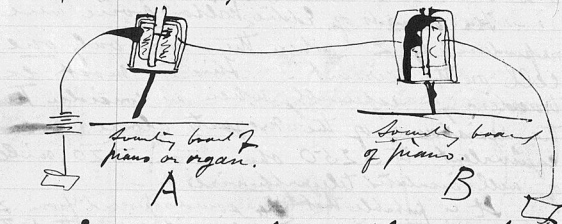 Sounding board of
piano or organ.
A
Sounding board
of piano.
B